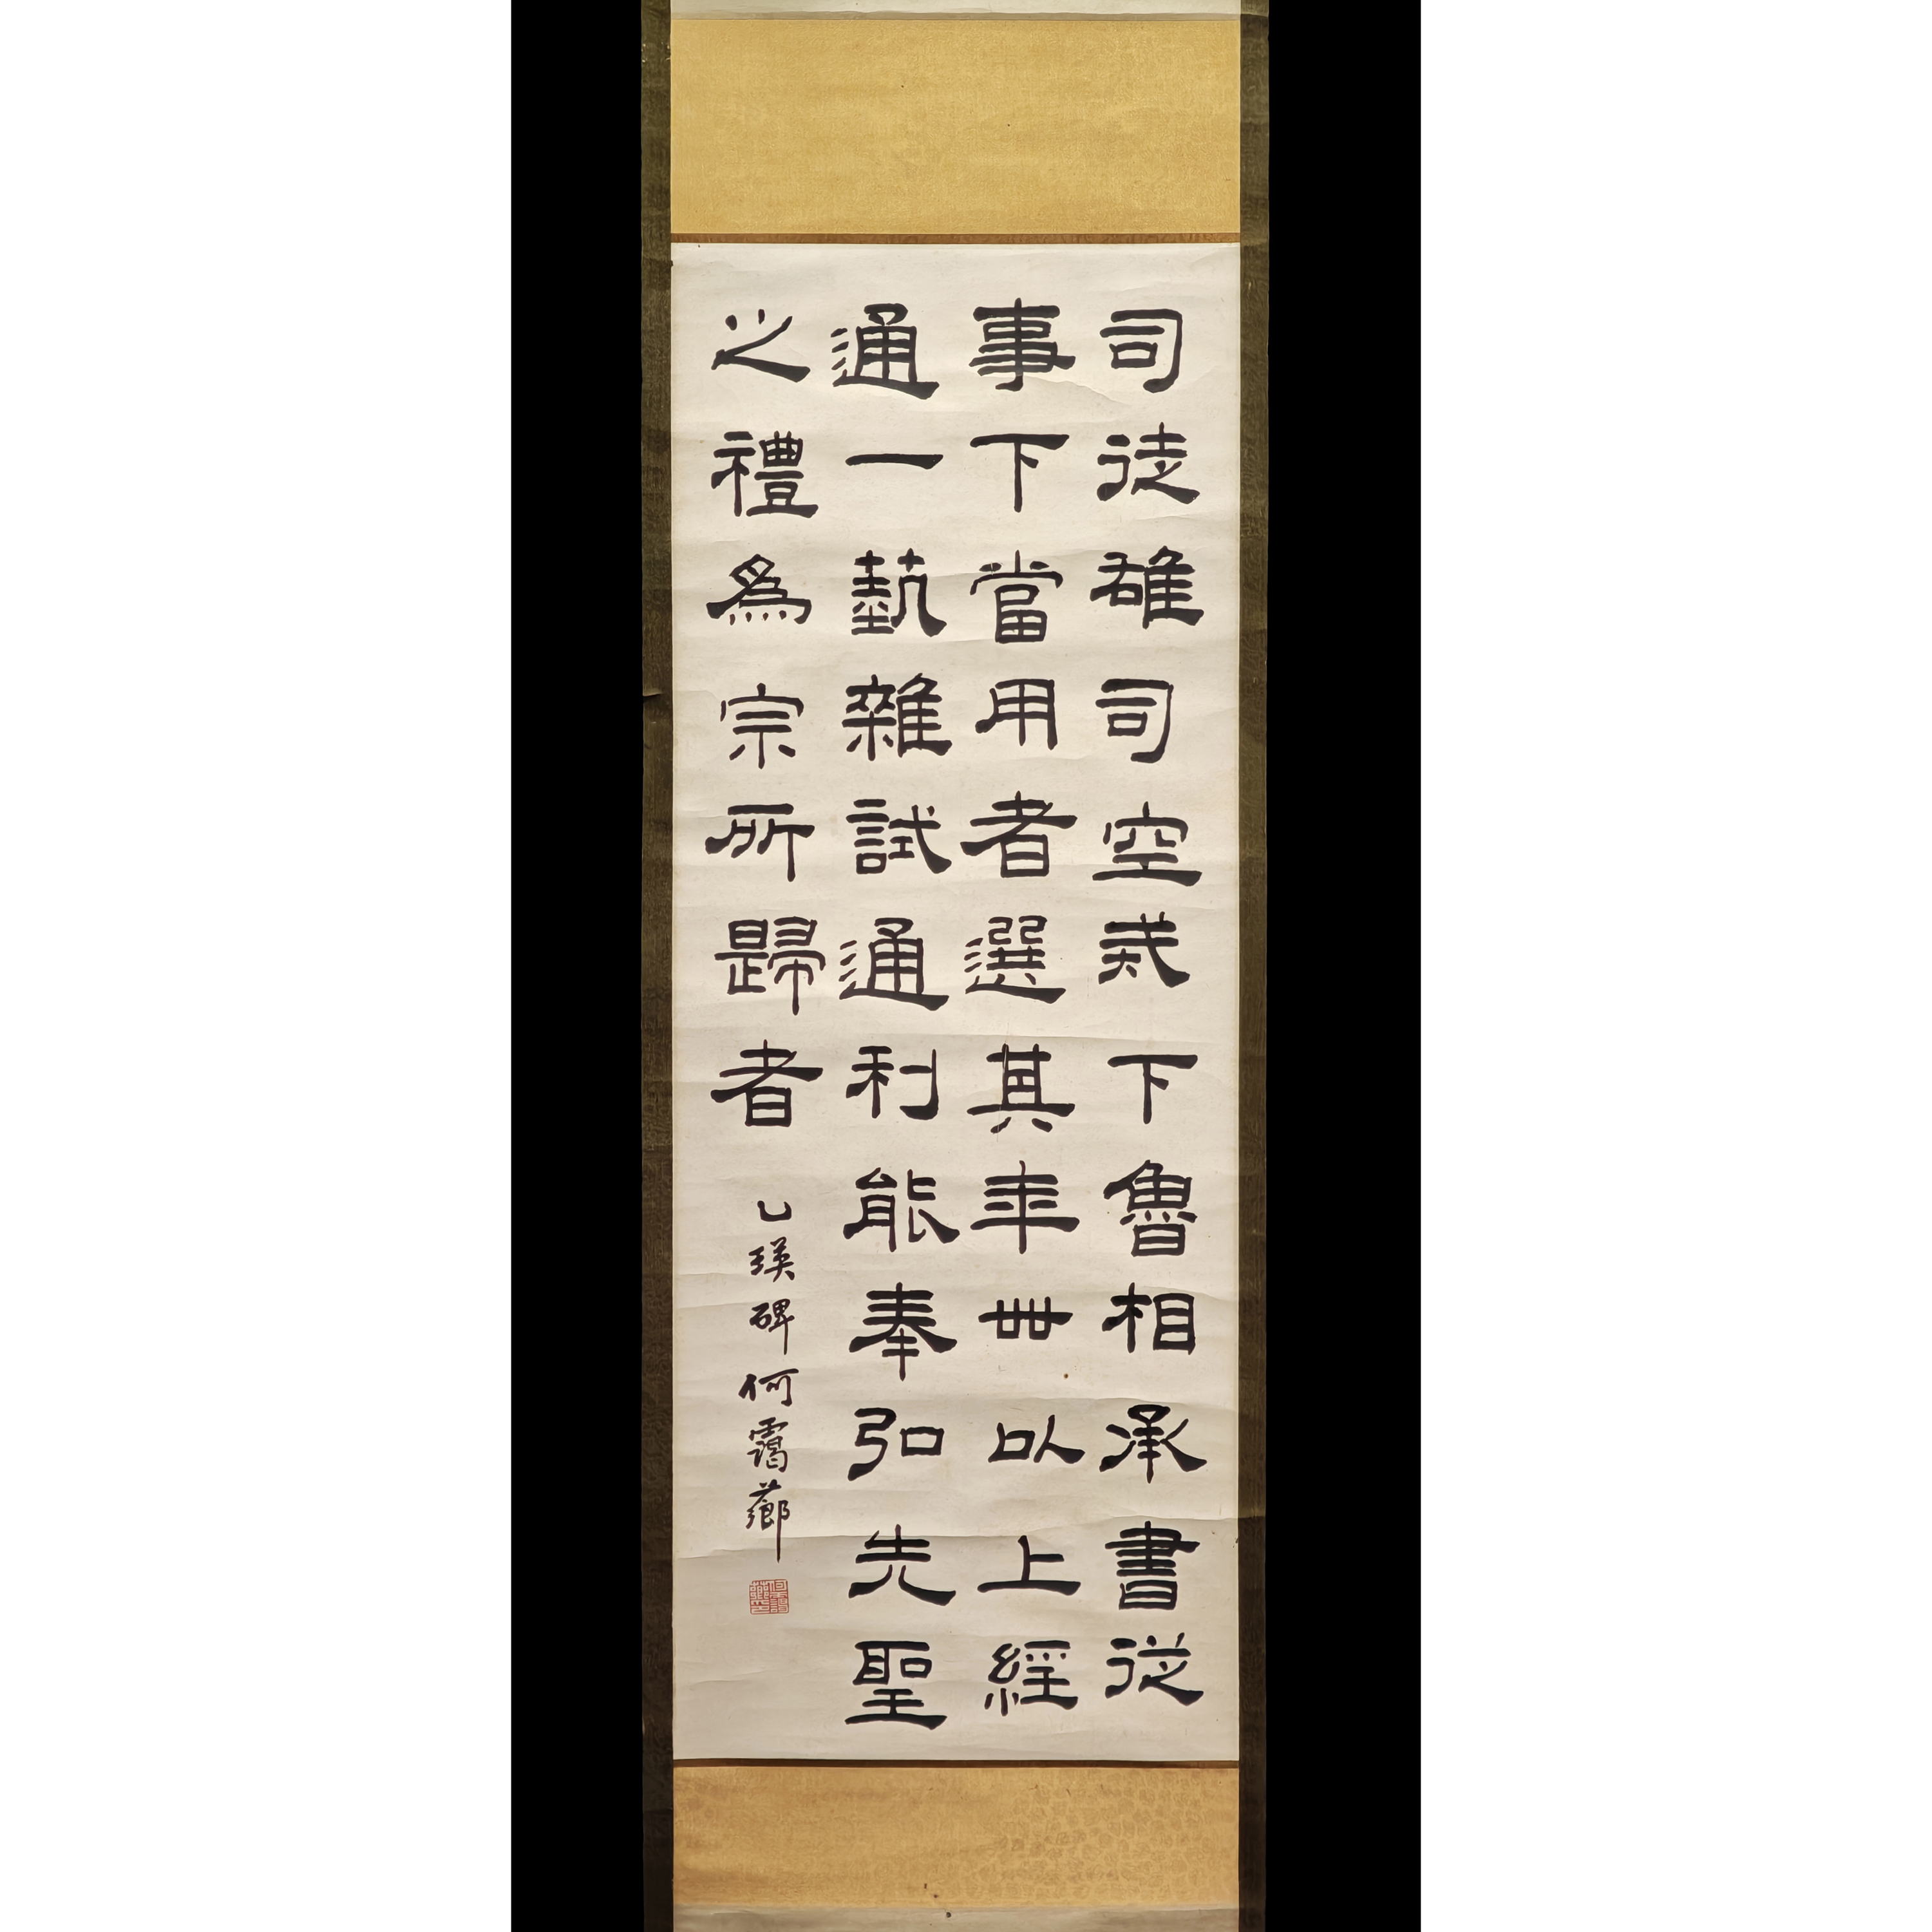 司徒雄司空戒下魯相承書從
事下當用者選其年卌以上經
通一藝雜試通利能奉弘先聖
之禮為宗所歸者
乙瑛碑何靄薌